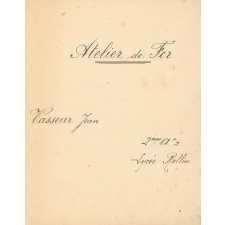 Atelier de Fer
Vasseur Jean
2ème A 2
Lycée Rollin